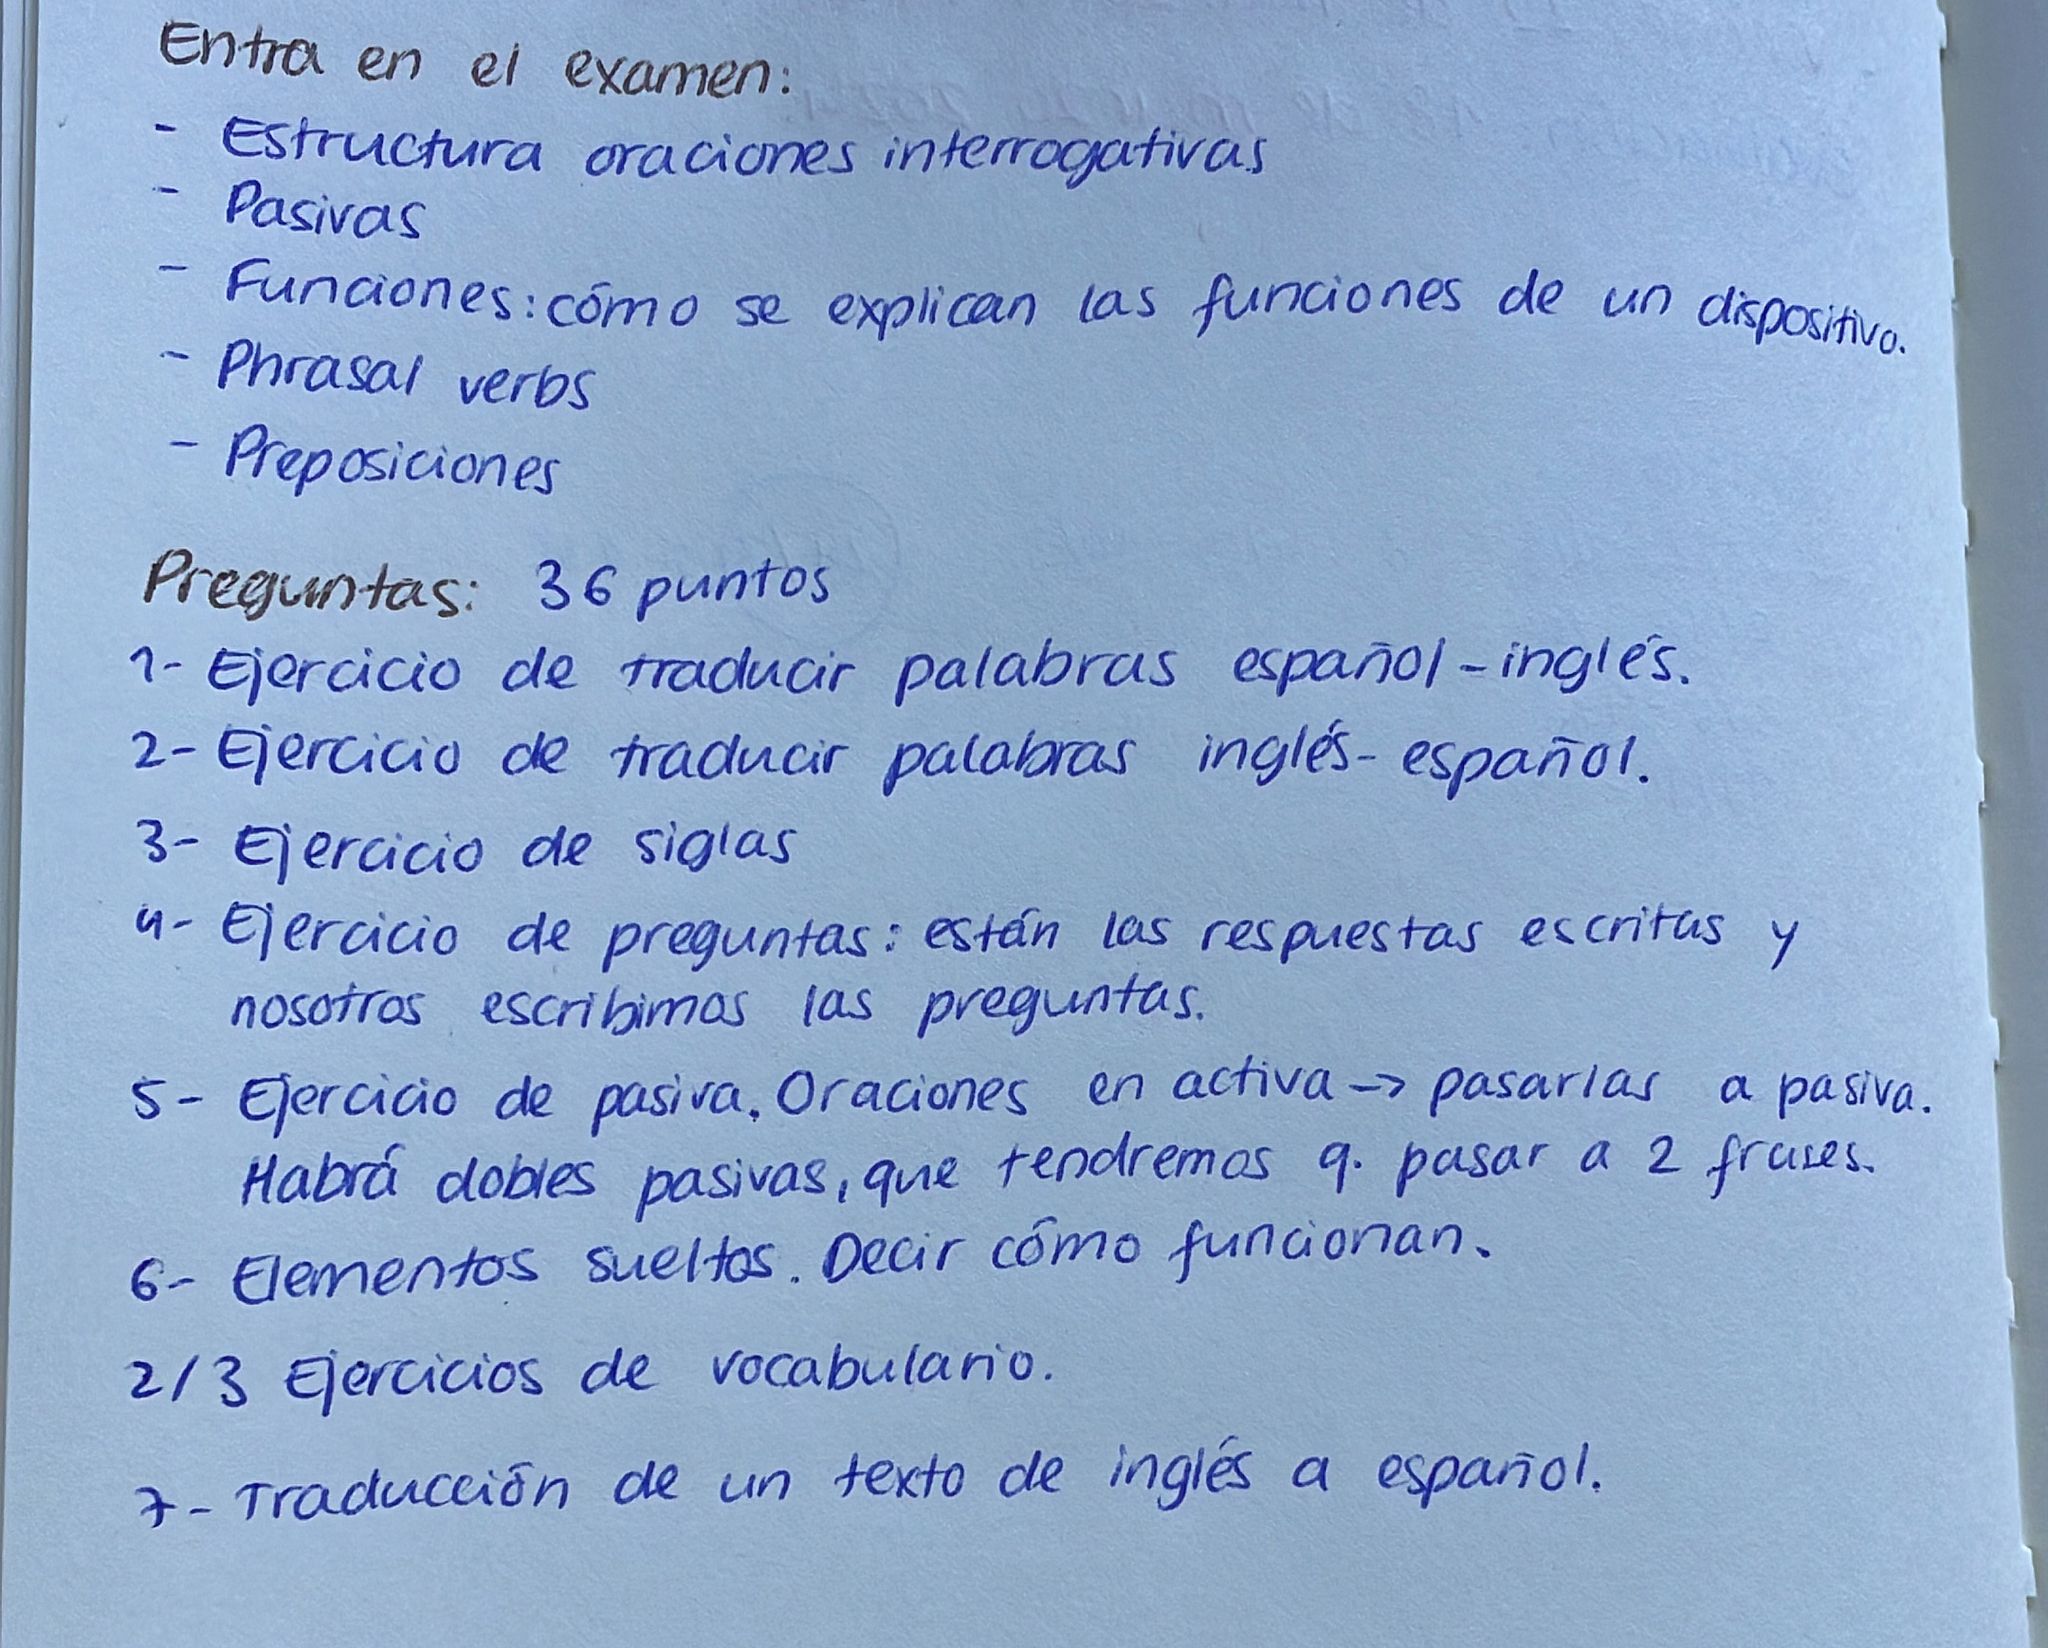 Entra en el examen:
- Estructura oraciones interrogativas
- Pasivas
- Funciones: cómo se explican las funciones de un dispositivo.
- Phrasal verbs
- Preposiciones
Preguntas: 36 puntos
1- Ejercicio de traducir palabras español-inglés.
2- Ejercicio de traducir palabras inglés-español.
3- Ejercicio de siglas
4- Ejercicio de preguntas: están las respuestas escritas y
nosotros escribimos las preguntas.
5- Ejercicio de pasiva. Oraciones en activa → pasarlas a pasiva.
Habrá dobles pasivas, que tendremos q. pasar a 2 frases.
6- Elementos sueltos. Decir cómo funcionan.
2/3 Ejercicios de vocabulario.
7- Traducción de un texto de inglés a español.